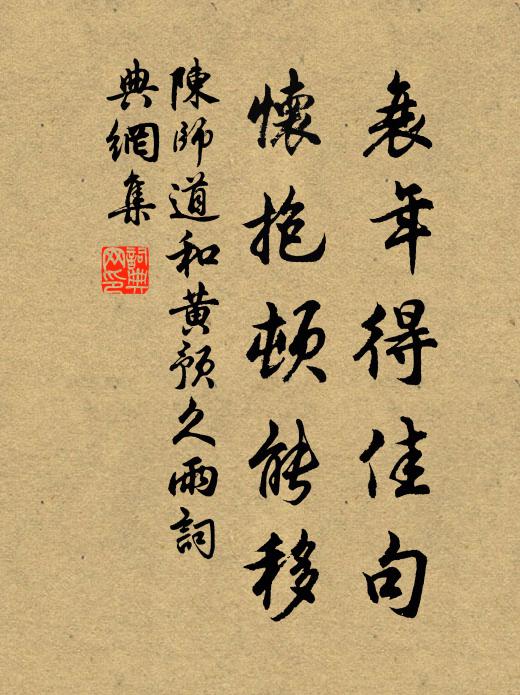 衰年得佳句
懷抱頓能移
陳師道和黃預久雨詞
典網集
詞典網印